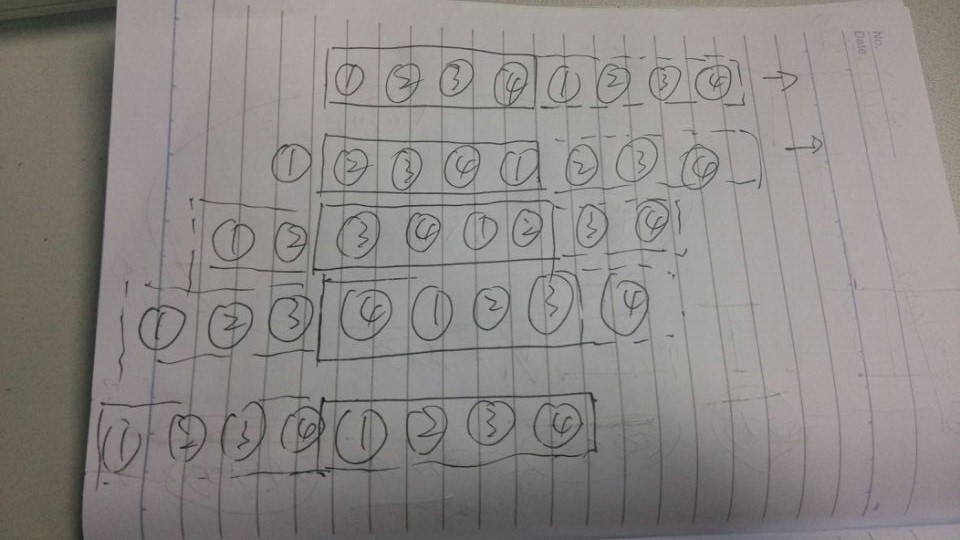 No.
Date
① ② ③ ④ ① ② ③ ④ →
① ② ③ ④ ① ② ③ ④ →
① ② ③ ④ ① ② ③ ④
① ② ③ ④ ① ② ③ ④
① ② ③ ④ ① ② ③ ④